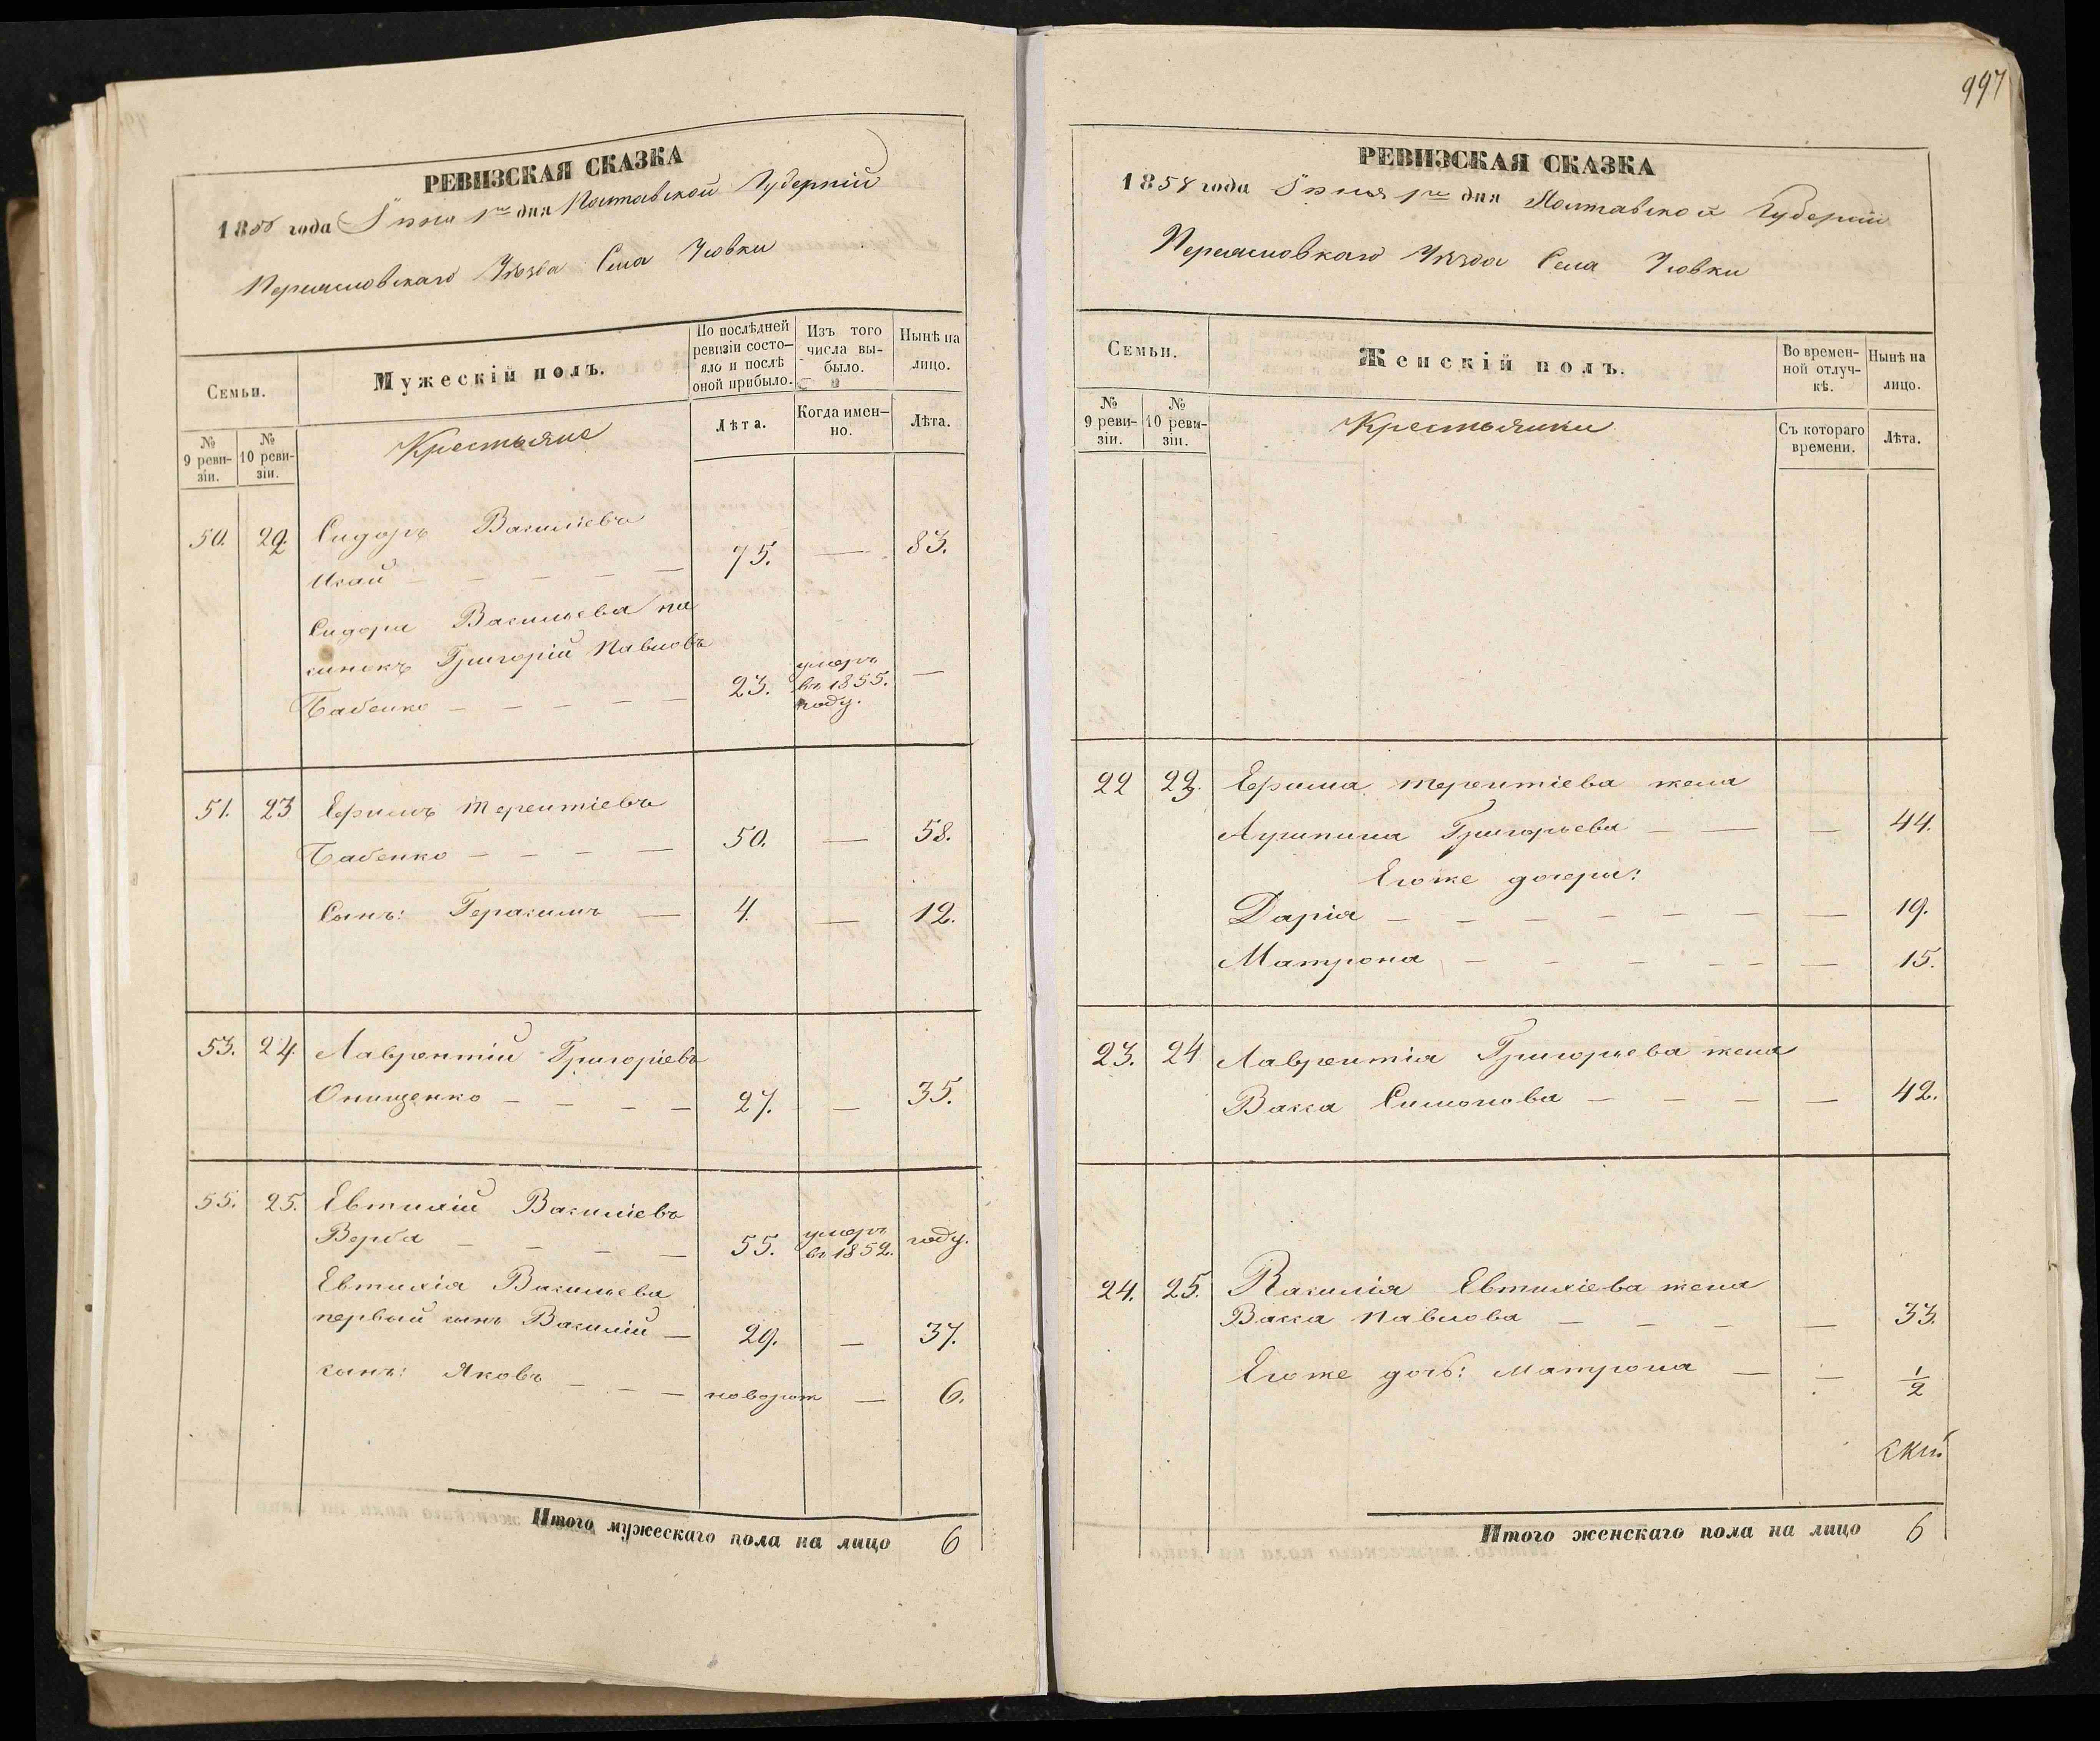 РЕВИЗСКАЯ СКАЗКА
1858 года Іюня 1го дня Полтавской Губерніи
Переяславскаго Уѣзда Села Усовки
Семьи.
Мужескій полъ.
По послѣдней ревизіи состояло и послѣ оной прибыло.
Изъ того числа выбыло.
Нынѣ на лицо.
№ 9 ревизіи.
№ 10 ревизіи.
Крестьяне
Лѣта.
Когда именно.
Лѣта.
50. 22. Сидоръ Василіевъ
75. — 83.
Сидора Васильева па
сынокъ Григорій Павловъ
Бабенко — — — — — 23. умеръ въ 1855. году. —
51. 23 Ефимъ Терентіевъ
Бабенко — — — — 50. — 58.
Сынъ: Герасимъ — 4. — 12.
53. 24. Лаврентій Григоріевъ
Онищенко — — — — 27. — 35.
55. 25. Евтихій Василіевъ
Верба — — — — 55. умеръ въ 1852. году.
Евтихія Васильева
первый сынъ Василій — 29. — 37.
сынъ: Яковъ — — — новорож — 6.
Итого мужескаго пола на лицо 6
997
РЕВИЗСКАЯ СКАЗКА
1858 года Іюня 1го дня Полтавской Губерніи
Переясловскаго Уѣзда Села Усовки
Семьи.
Женскій полъ.
Во временной отлучкѣ.
Нынѣ на лицо.
№ 9 ревизіи.
№ 10 ревизіи.
Крестьянки
Съ котораго времени.
Лѣта.
22 23. Ефима Терентіева жена
Григорьева — — — 44.
Егоже дочери:
Дарія — — — — — — — 19.
Матрона — — — — — — 15.
23. 24 Лаврентія Григорьева жена
Васса Симонова — — — — 42.
24. 25. Василія Евтихіева жена
Васса Павлова — — — — — 33.
Егоже дочь: Матрона — — 1/2
Итого женскаго пола на лицо 6